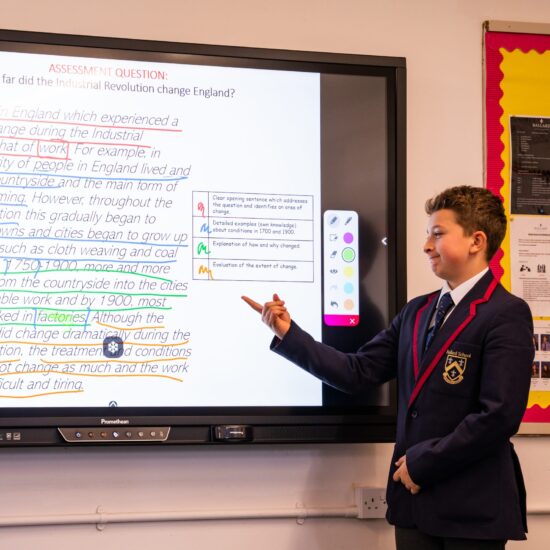 ASSESSMENT QUESTION:
far did the Industrial Revolution change England?
in England which experienced a
ange during the Industrial
hat of work. For example, in
ity of people in England lived and
ountryside and the main form of
ming. However, throughout the
tion this gradually began to
wns and cities began to grow up
such as cloth weaving and coal
1750-1900, more and more
om the countryside into the cities
ble work and by 1900, most
ked in factories. Although the
did change dramatically during the
tion, the treatment and conditions
ot change as much and the work
ficult and tiring.
Clear opening sentence which addresses
the question and identifies an area of
change.
Detailed examples (own knowledge)
about conditions in 1700 and 1900.
Explanation of how and why changed.
Evaluation of the extent of change.
Promethean